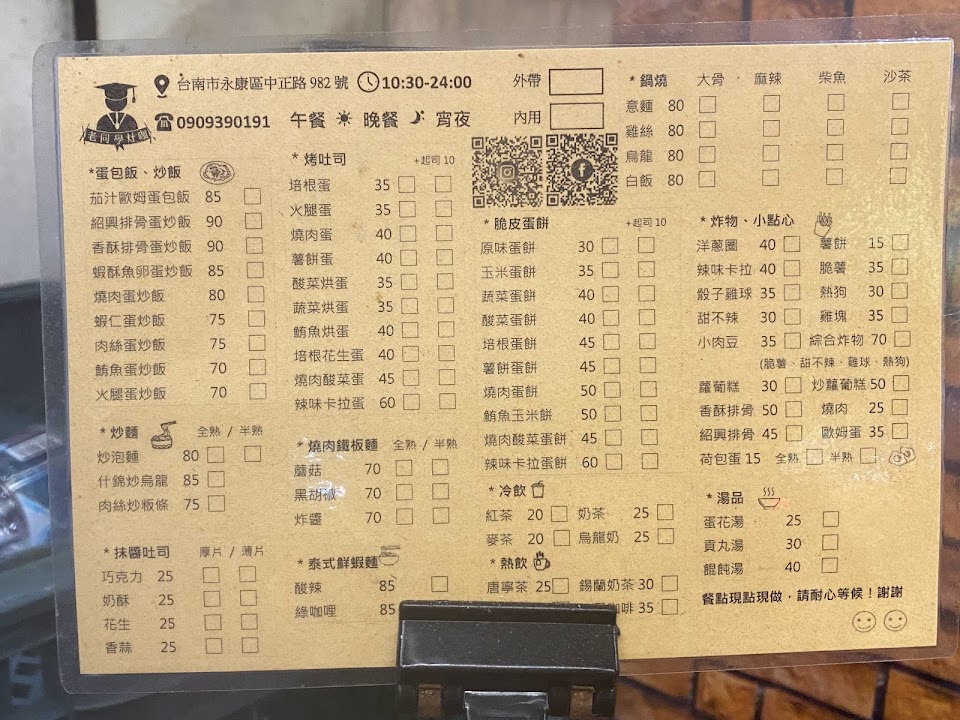 台南市永康區中正路 982 號 10:30-24:00
老同學灶咖
0909390191 午餐 晚餐 宵夜
外帶
內用
*蛋包飯、炒飯
茄汁歐姆蛋包飯 85
紹興排骨蛋炒飯 90
香酥排骨蛋炒飯 90
蝦酥魚卵蛋炒飯 85
燒肉蛋炒飯 80
蝦仁蛋炒飯 75
肉絲蛋炒飯 75
鮪魚蛋炒飯 70
火腿蛋炒飯 70
*炒麵 全熟 / 半熟
炒泡麵 80
什錦炒烏龍 85
肉絲炒粄條 75
*抹醬吐司 厚片 / 薄片
巧克力 25
奶酥 25
花生 25
香蒜 25
*烤吐司 +起司 10
培根蛋 35
火腿蛋 35
燒肉蛋 40
薯餅蛋 40
酸菜烘蛋 35
蔬菜烘蛋 35
鮪魚烘蛋 40
培根花生蛋 40
燒肉酸菜蛋 45
辣味卡拉蛋 60
*燒肉鐵板麵 全熟 / 半熟
蘑菇 70
黑胡椒 70
炸醬 70
*泰式鮮蝦麵
酸辣 85
綠咖哩 85
*脆皮蛋餅 +起司 10
原味蛋餅 30
玉米蛋餅 35
蔬菜蛋餅 40
酸菜蛋餅 40
培根蛋餅 45
薯餅蛋餅 45
燒肉蛋餅 50
鮪魚玉米餅 50
燒肉酸菜蛋餅 50
辣味卡拉蛋餅 60
*冷飲
紅茶 20 奶茶 25
麥茶 20 烏龍奶 25
*熱飲
唐寧茶 25 錫蘭奶茶 30
咖啡 35
*鍋燒 大骨 麻辣 柴魚 沙茶
意麵 80
雞絲 80
烏龍 80
白飯 80
*炸物、小點心
洋蔥圈 40 薯餅 15
辣味卡拉 40 脆薯 35
骰子雞球 35 熱狗 30
甜不辣 30 雞塊 35
小肉豆 35 綜合炸物 70
(脆薯、甜不辣、雞球、熱狗)
蘿蔔糕 30 炒蘿蔔糕 50
香酥排骨 50 燒肉 25
紹興排骨 45 歐姆蛋 35
荷包蛋 15 全熟 半熟
*湯品
蛋花湯 25
貢丸湯 30
餛飩湯 40
餐點現點現做，請耐心等候！謝謝